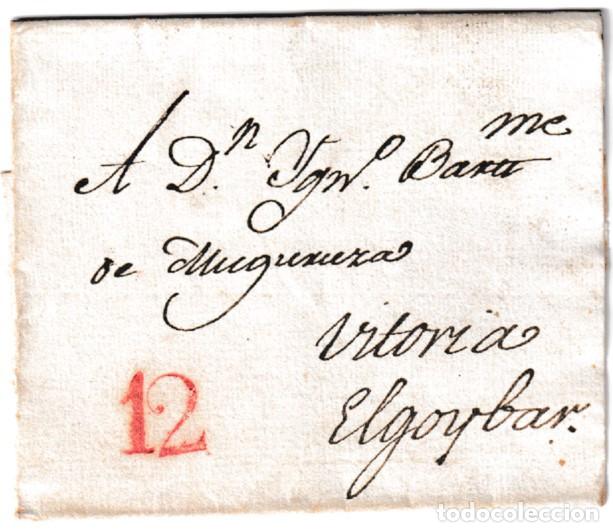 A D.n Ygn.o Bartme
de Muguruza
Vitoria
Elgoybar.
12
todocoleccion